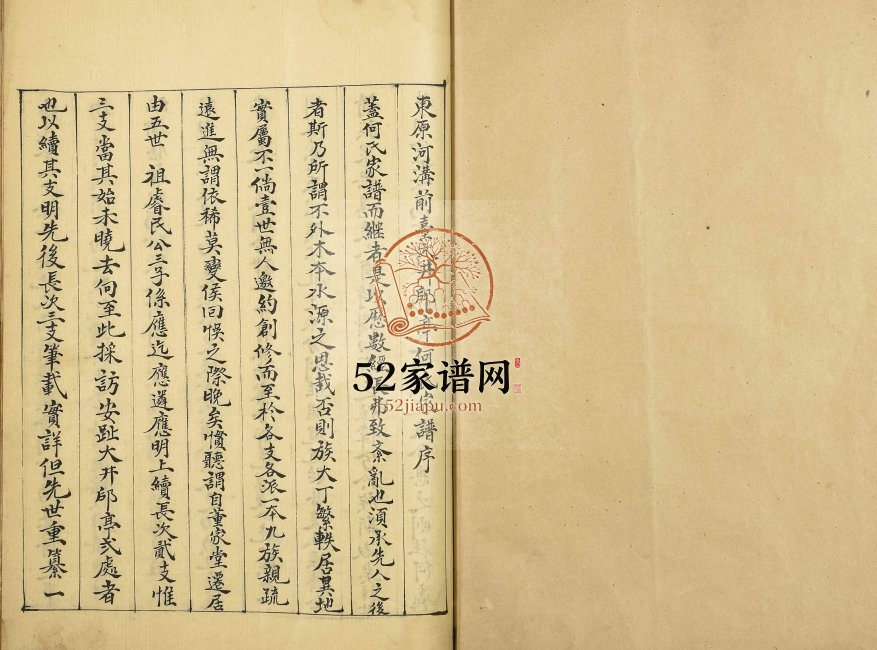 東原河溝前臺大井邱亭何氏家譜序
蓋何氏家譜而継者是以歷數經久弗致紊亂也須承先人之後
者斯乃所謂不外木本水源之思哉否則族大丁繁軼居異地
實屬不一倘壹世無人邀約創修而至於各支各派一本九族親疏
遠進無謂依稀莫變俟回悞之際晚矣慣聽謂自董家堂遷居
由五世 祖睿民公三子係應迄應遴應明上續長次貳支惟
三支當其始未曉去向至此採訪安趾大井邱亭弍處者
也以續其支明先後長次三支筆載實詳但先世重纂一
52家谱网
52jiapu.com